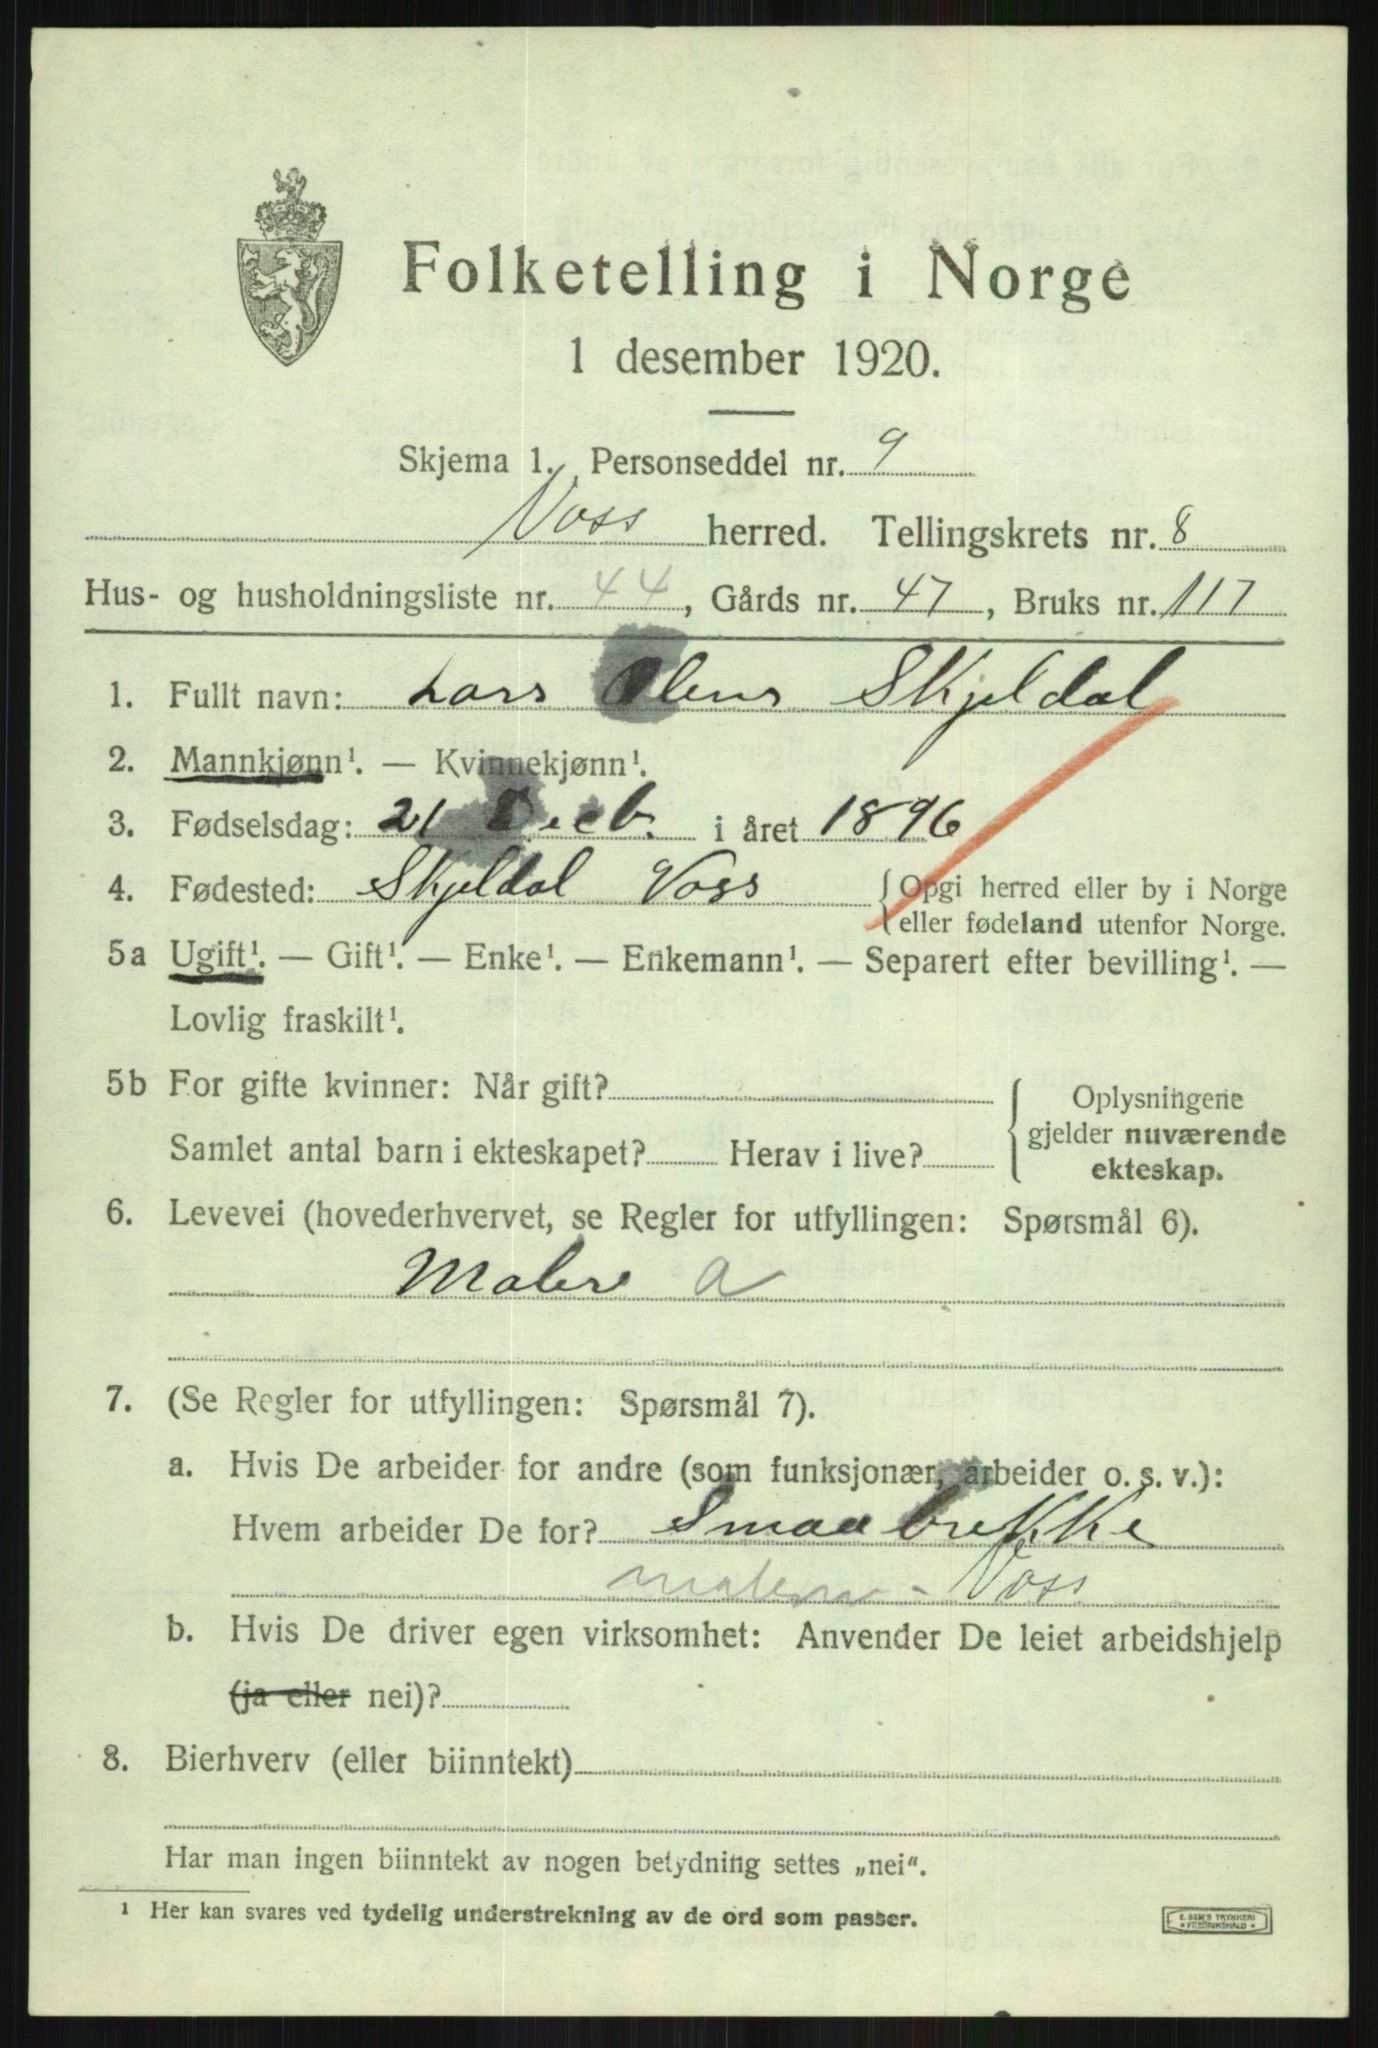 Folketelling i Norge
1 desember 1920.
Skjema 1. Personseddel nr. 9
Voss herred. Tellingskrets nr. 8
Hus- og husholdningsliste nr. 44, Gårds nr. 47, Bruks nr. 117
1. Fullt navn: Lars Olens Skjeldal
2. Mannkjønn¹. — Kvinnekjønn¹.
3. Fødselsdag: 21 Decb. i året 1896
4. Fødested: Skjeldal Voss {Opgi herred eller by i Norge
eller fødeland utenfor Norge.
5a Ugift¹. — Gift¹. — Enke¹. — Enkemann¹. — Separert efter bevilling¹. —
Lovlig fraskilt¹.
5b For gifte kvinner: Når gift? { Oplysningene
gjelder nuværende
Samlet antal barn i ekteskapet? Herav i live? ekteskap.
6. Levevei (hovederhvervet, se Regler for utfyllingen: Spørsmål 6).
Maler a
7. (Se Regler for utfyllingen: Spørsmål 7).
a. Hvis De arbeider for andre (som funksjonær, arbeider o. s. v.):
Hvem arbeider De for? Smaabrekke
Voss
b. Hvis De driver egen virksomhet: Anvender De leiet arbeidshjelp
(ja eller nei)?
8. Bierhverv (eller biinntekt)
Har man ingen biinntekt av nogen betydning settes „nei“.
¹ Her kan svares ved tydelig understrekning av de ord som passer.
E. SEM'S TRYKKERI
FREDRIKSHALD